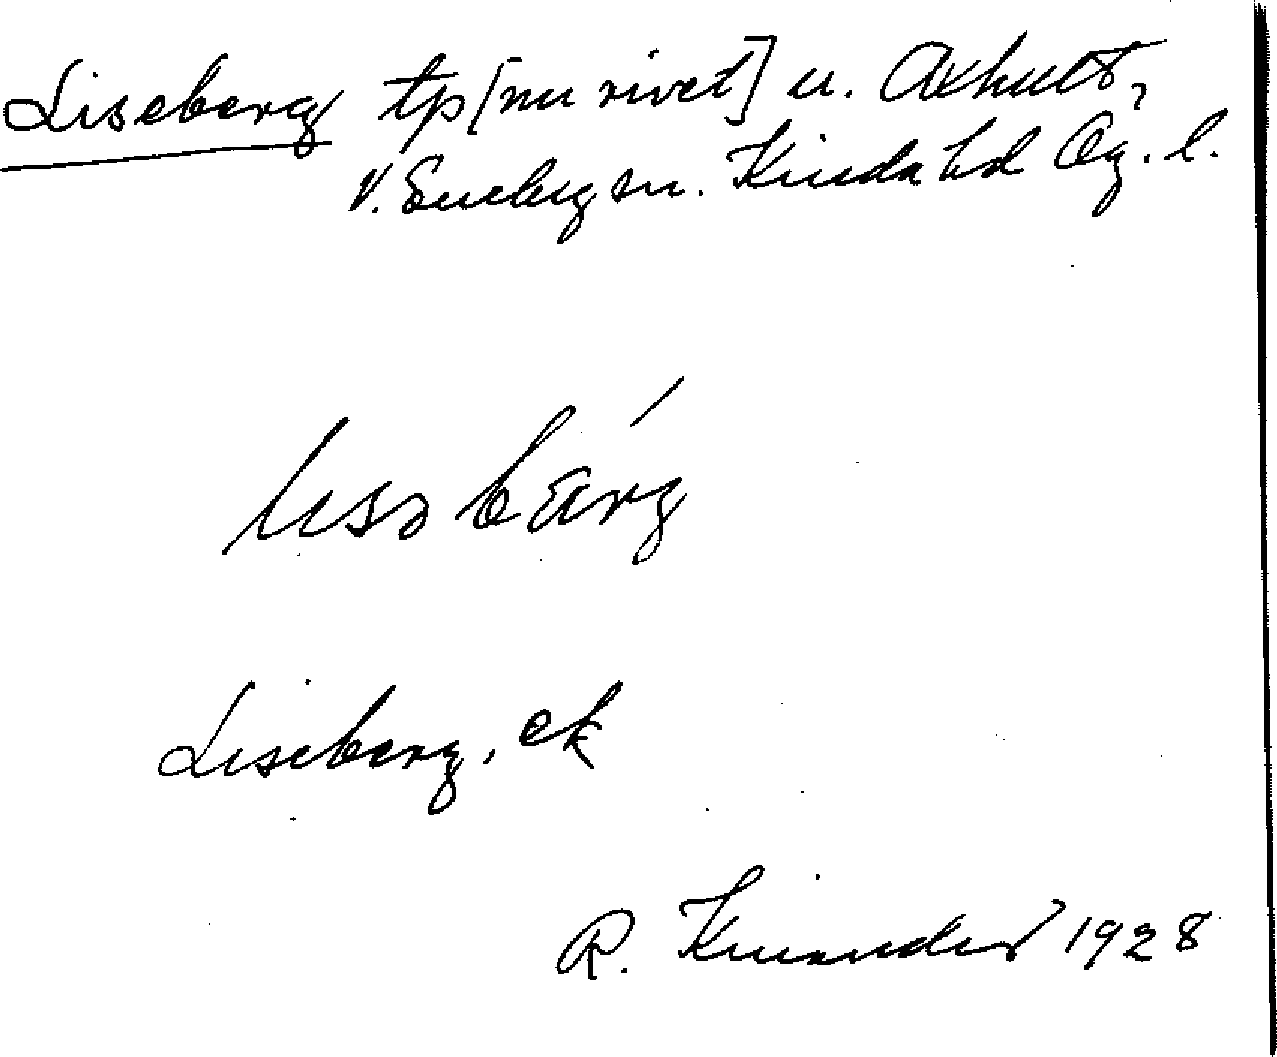 Liseberg tp [nu rivet] u. Axhult,
V. Eneby sn. Kinda hd Ög. l.
Liseberg, ek
R. Kinander 1928